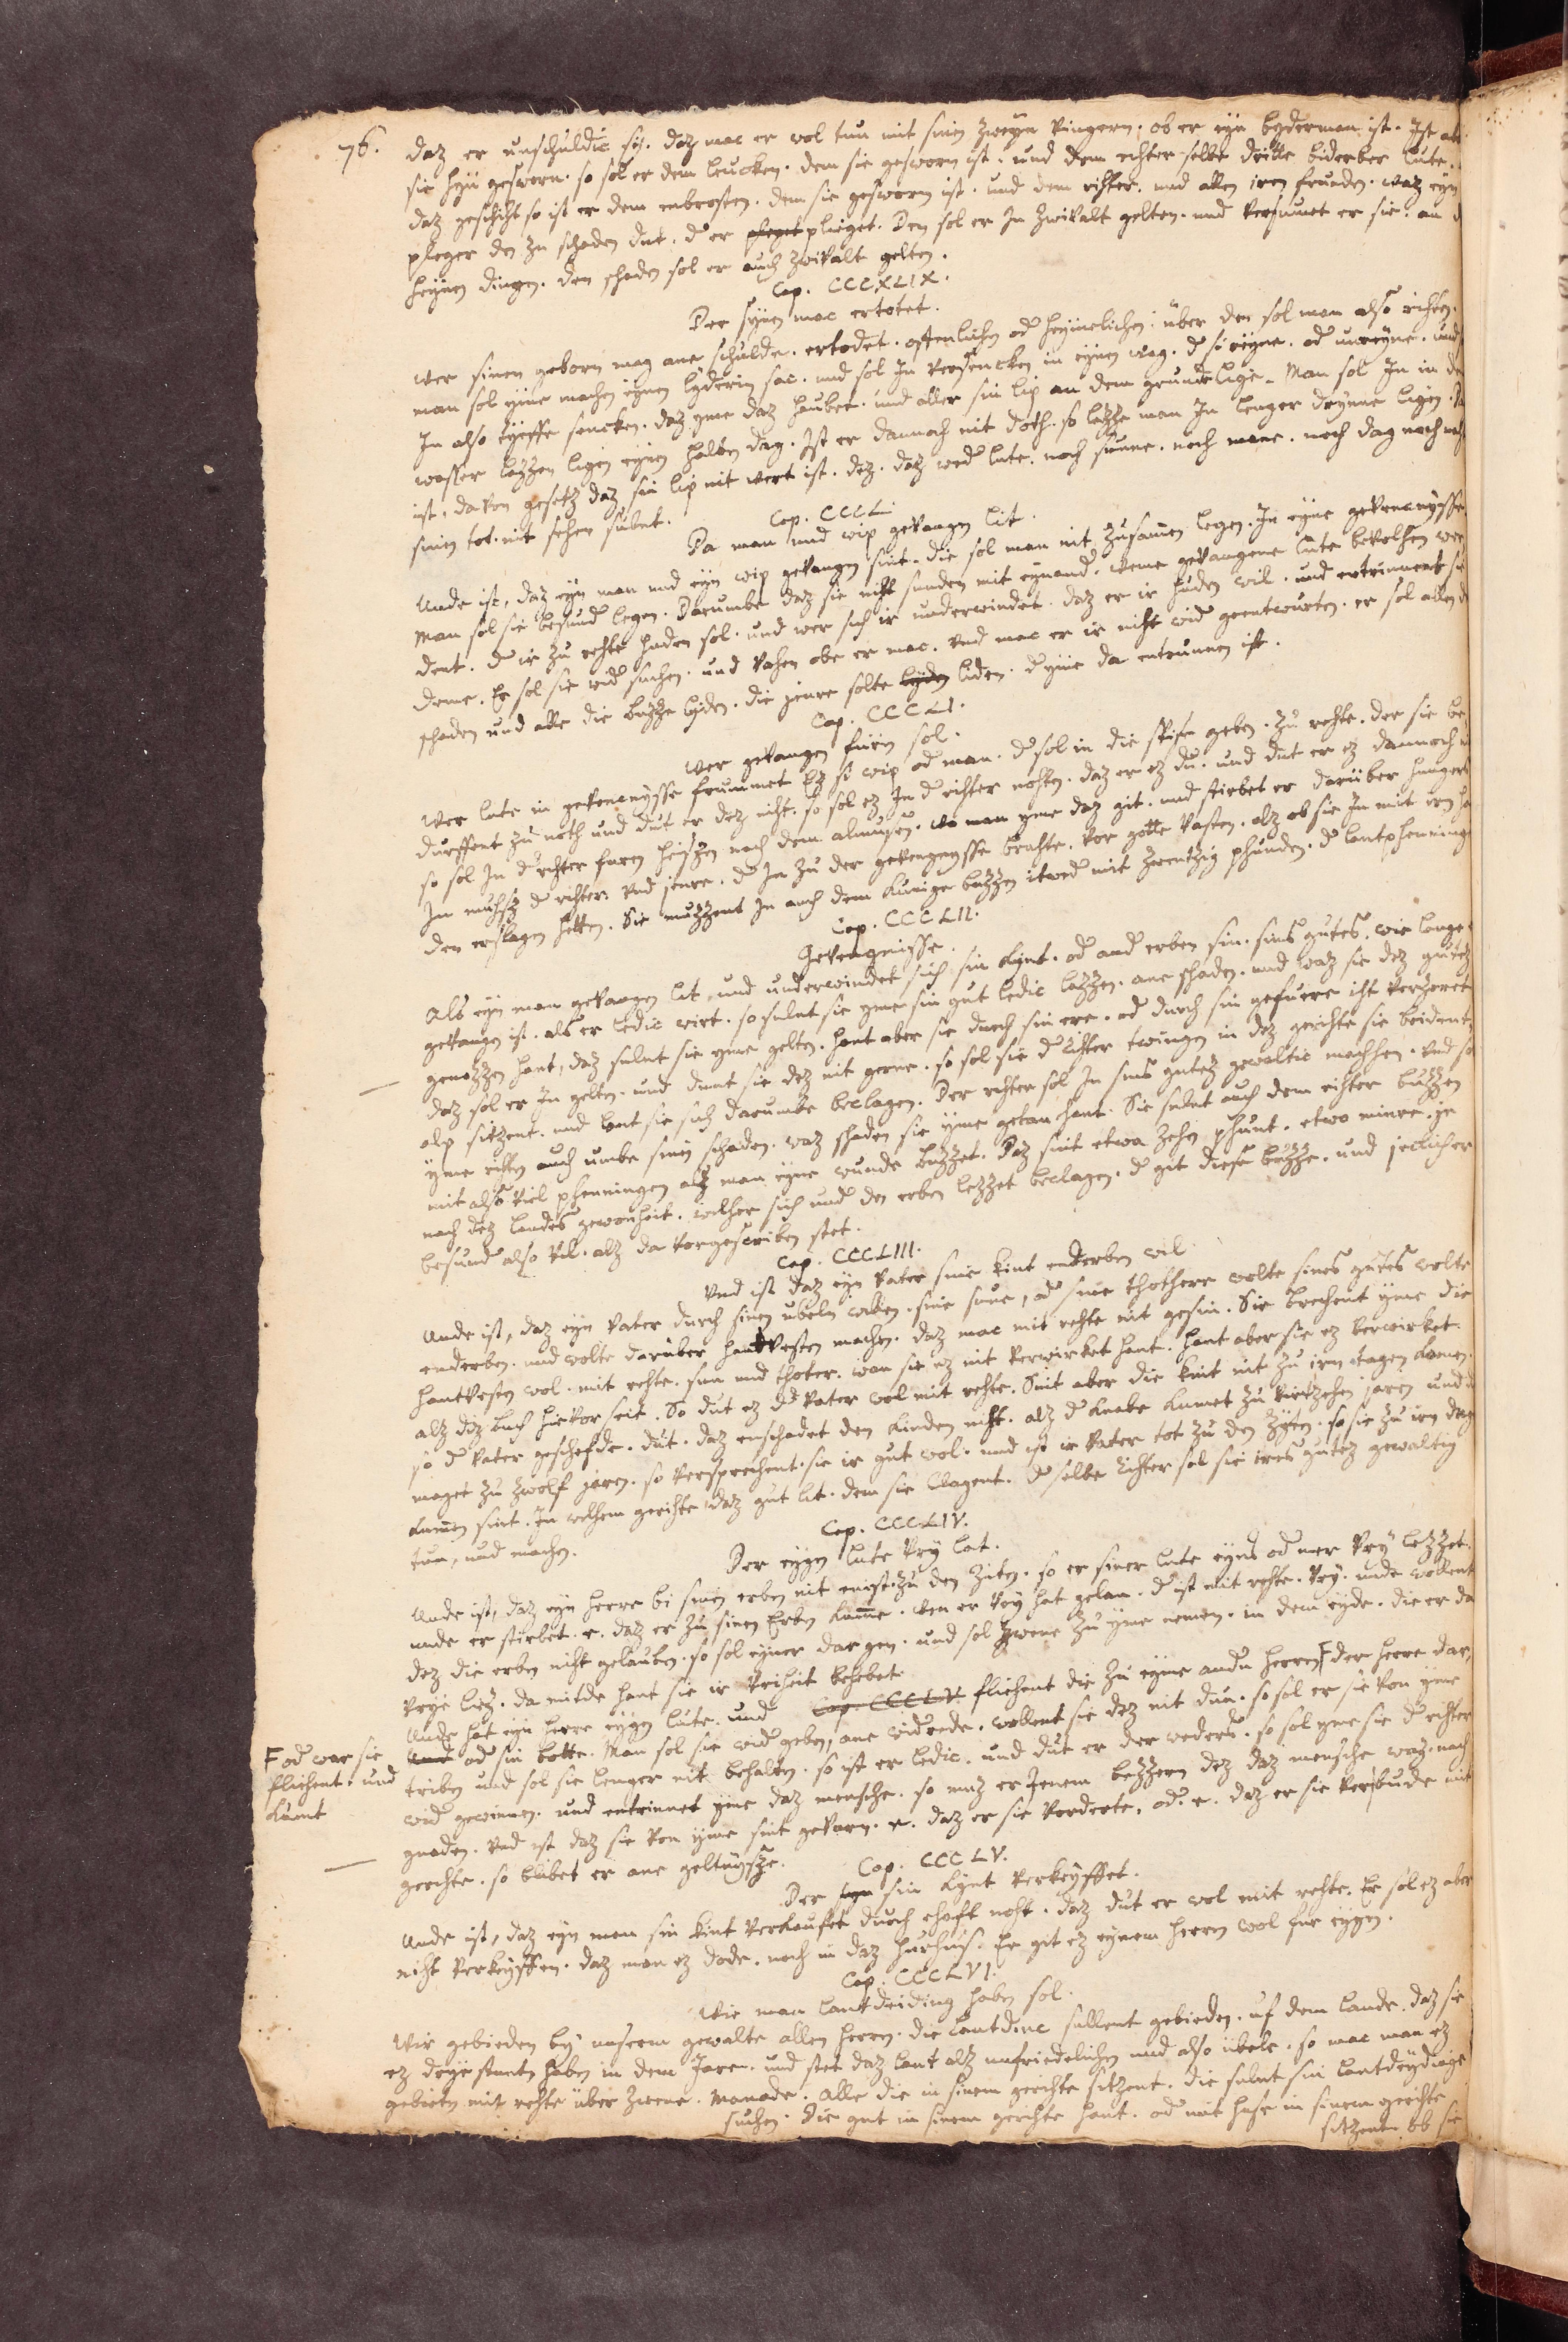 76.
daz er unschuldic si. daz mac er wol tun mit sinen zweyn vingern. ob er eyn byderman ist. Ist ab
sie hyn gesworn. so sol er dem leucken. dem sie gesworn ist. und dem rihter selbe dritte biderber lute.
daz geschiht so ist er dem enbrosten. dem sie gesworn ist. und dem rihter. und allen iren frunden. waz eyn
pfleger den zu schaden dut. d' er pfleget pliget. Den sol er In zwivalt gelten. und versumet er sie. an
heynen dingen. den schaden sol er auch zwivalt gelten.
Cap. CCCXLIX.
Der synen mac ertotet.
Wer sinen geborn mag ane schulde. ertodet. offenlichen od' heymelichen. über den sol man also rihten.
man sol yme machen eynen lyderin sac. und sol In versencken in eynen wag. d' si reyne. od' unreyne. und
In also tyeffe sencken. daz yme daz haubet. und aller sin lip an dem grunde lige. Man sol In in de
wasser lazzen ligen eynen halben dag. Ist er dannoch nit doth. so lazze man In lenger drynne ligen. Da
ist, davon gesetz daz sin lip nit wert ist. dez. daz wed' lute. noch sunne. noch mane. noch dag noch naht
sinen tot. nit sehen sulnt.
Cap. CCCL.
Da man und wip gevangen lit.
Unde ist, daz eyn man und eyn wip gevangen sint. die sol man nit zusamen legen. In eyne gevencnysse
Man sol sie besund' legen. Darumbe daz sie niht sunden mit eynand'. Weme gevangene lute bevolhen wer
dent. d' ir zu rehte huden sol. und wer sich ir underwindet. daz er ir huden wil. und entrinnent sie
deme. Er sol sie wid' suchen. und vahen obe er mac. Und mac er ir niht wid' geentwurten. er sol allen d
schaden und alle die buzze lyden. die jenre solte lyden liden. d' yme da entrunnen ist.
Cap. CCCLI.
Wer gevangen fürn sol.
Wer lute in gevencnysse frummet Ez si wip od' man. d' sol in die spise geben. zu rehte. der sie be
durffent zu noth und dut er dez niht. so sol ez In d' rihter nohten. daz er ez du. und dut er ez dannoch n
so sol In d' rihter faren heizzen nach dem almusen. wo man yme daz git. und stirbet er darüber hungers
In muhsz d' rihter. und jenre. d' In zu der gevengnysse brahte. vor gotte vasten. alz ob sie In mit irn ha
den erslagen hetten. Sie muzzent In auch dem Kunige buzzen itwed' mit zwentzig phunden. d' lantphenninge
Cap. CCCLII.
Gevengnisse.
Als eyn man gevangen lit, und underwindet sich, sin Kynt. od' and' erben sin. sins gutes. wie lange
gevangen ist. als er ledic wirt. so sulnt sie yme sin gut ledic lazzen. ane schaden. und waz sie dez gutez
genozzen hant, daz sulnt sie yme gelten. hant aber sie durch sin ere. od' durch sin gefuere iht verzeret
daz sol er In gelten. und dunt sie dez nit gerne. so sol sie d' rihter twingen in dez gerihte sie beident
alz sitzent. und lont sie sich darumbe beclagen. Der rihter sol In sins gutez gewaltic machhen. und sol
yme rihten auch umbe sinen schaden. waz schaden sie yme getan hant. Sie sulnt auch dem rihter buzzen
mit also viel phenningen alz man eyne wunde buzzet. Daz sint etwa zehen phunt. etwo minre. Ye
nach dez landes gewonheit. welher sich und' den erben lezzet beclagen. d' git diese buzze. und jeclicher
besund' also vil. alz da vorgescriben stet.
Cap. CCCLIII.
Und ist daz eyn vater sine kint enderben wil
Unde ist, daz eyn vater durch sinen ubeln willen. sine sune, od' sine thothere wolte sines gutes wolte
enderben. und wolte darüber hantvesten machen. daz mac mit rehte nit gesin. Sie brechent yme die
hantvesten wol. mit rehte. sun und thoter. wan sie ez nit verwirket hant. hant aber sie ez verwirket.
alz diz buch hievor seit. So dut ez d' vater wol mit rehte. Sint aber die kint nit zu irn tagen komen.
so d' vater geschefde. dut. daz enschadet den kinden niht. alz d' knabe kumet zu viertzehen jaren und d
maget zu zwolf jaren. so versprechent. sie ir gut wol. und ist ir vater tot zu den zyten. so sie zu irn dag
kumen sint. In welhem gerihte daz gut lit. dem sie clagent. d' selbe rihter sol sie ires gutez gewaltig
tun, und machen.
Cap. CCCLIV.
Der eygen lute vry lat.
Unde ist, daz eyn herre bi sinen erben nit enist. zu den ziten. so er siner lute eyns od' mer vry lezzet.
unde er stirbet. e. daz er zu sinen Erben kumme. Wen er vry hat gelan. d' ist mit rehte. vry. unde wollent
dez die erben niht gelauben. so sol eyner dar gen. und sol zwene zu yme nemen. in dem eyde. die er da
vrye liez. da mitde hant sie ir vriheit behebet.
Unde hat eyn herre eygen lute. und Cap. CCCLV. fliehent die zu eyme andn herren F der herre dar,
F od' war sie
fliehent. und
kumt
Und od' sin botte. Man sol sie wid' geben, ane widrede. wollent sie dez nit dun. so sol er sie von yme
triben und sol sie lenger nit behalten. so ist er ledic. und dut er der weders. so sol yme sie d' rihter
wid' gewinnen. und entrinnet yme daz mensche. so muz er Jenem bezzern dez daz mensche waz. nach
gnaden. Und ist daz sie von yme sint gevarn. e. daz er sie vorderte. od'. e. daz er sie verbude mit
gerihte. so blibet er ane geltnysze.
Cap. CCCLV.
Der syn sin Kynt verkeyffet.
Unde ist, daz eyn man sin kint verkaufet durch ehaft noht. daz dut er wol mit rehte. Er sol ez aber
niht verkeyffen. daz man ez dode. noch in daz hurhus. Er git ez eynem herrn wol fur eygen.
Cap. CCCLVI.
Wie man lantdeiding haben sol.
Wir gebieden by unserm gewalte allen herrn. die lantdinc sullent gebieden. uf dem lande. daz sie
ez drye stunt haben in dem Jare. und stet daz lant alz unfriedelichen und also ubele. so mac man ez
gebieten mit rehte über zwene. Manode. Alle die in sinem gerihte sitzent. die sulnt sin lantdeydinge
suchen. Die gut in sinem gerihte hant. od' mit huse in sinem gerihte
sitzent. ob sie